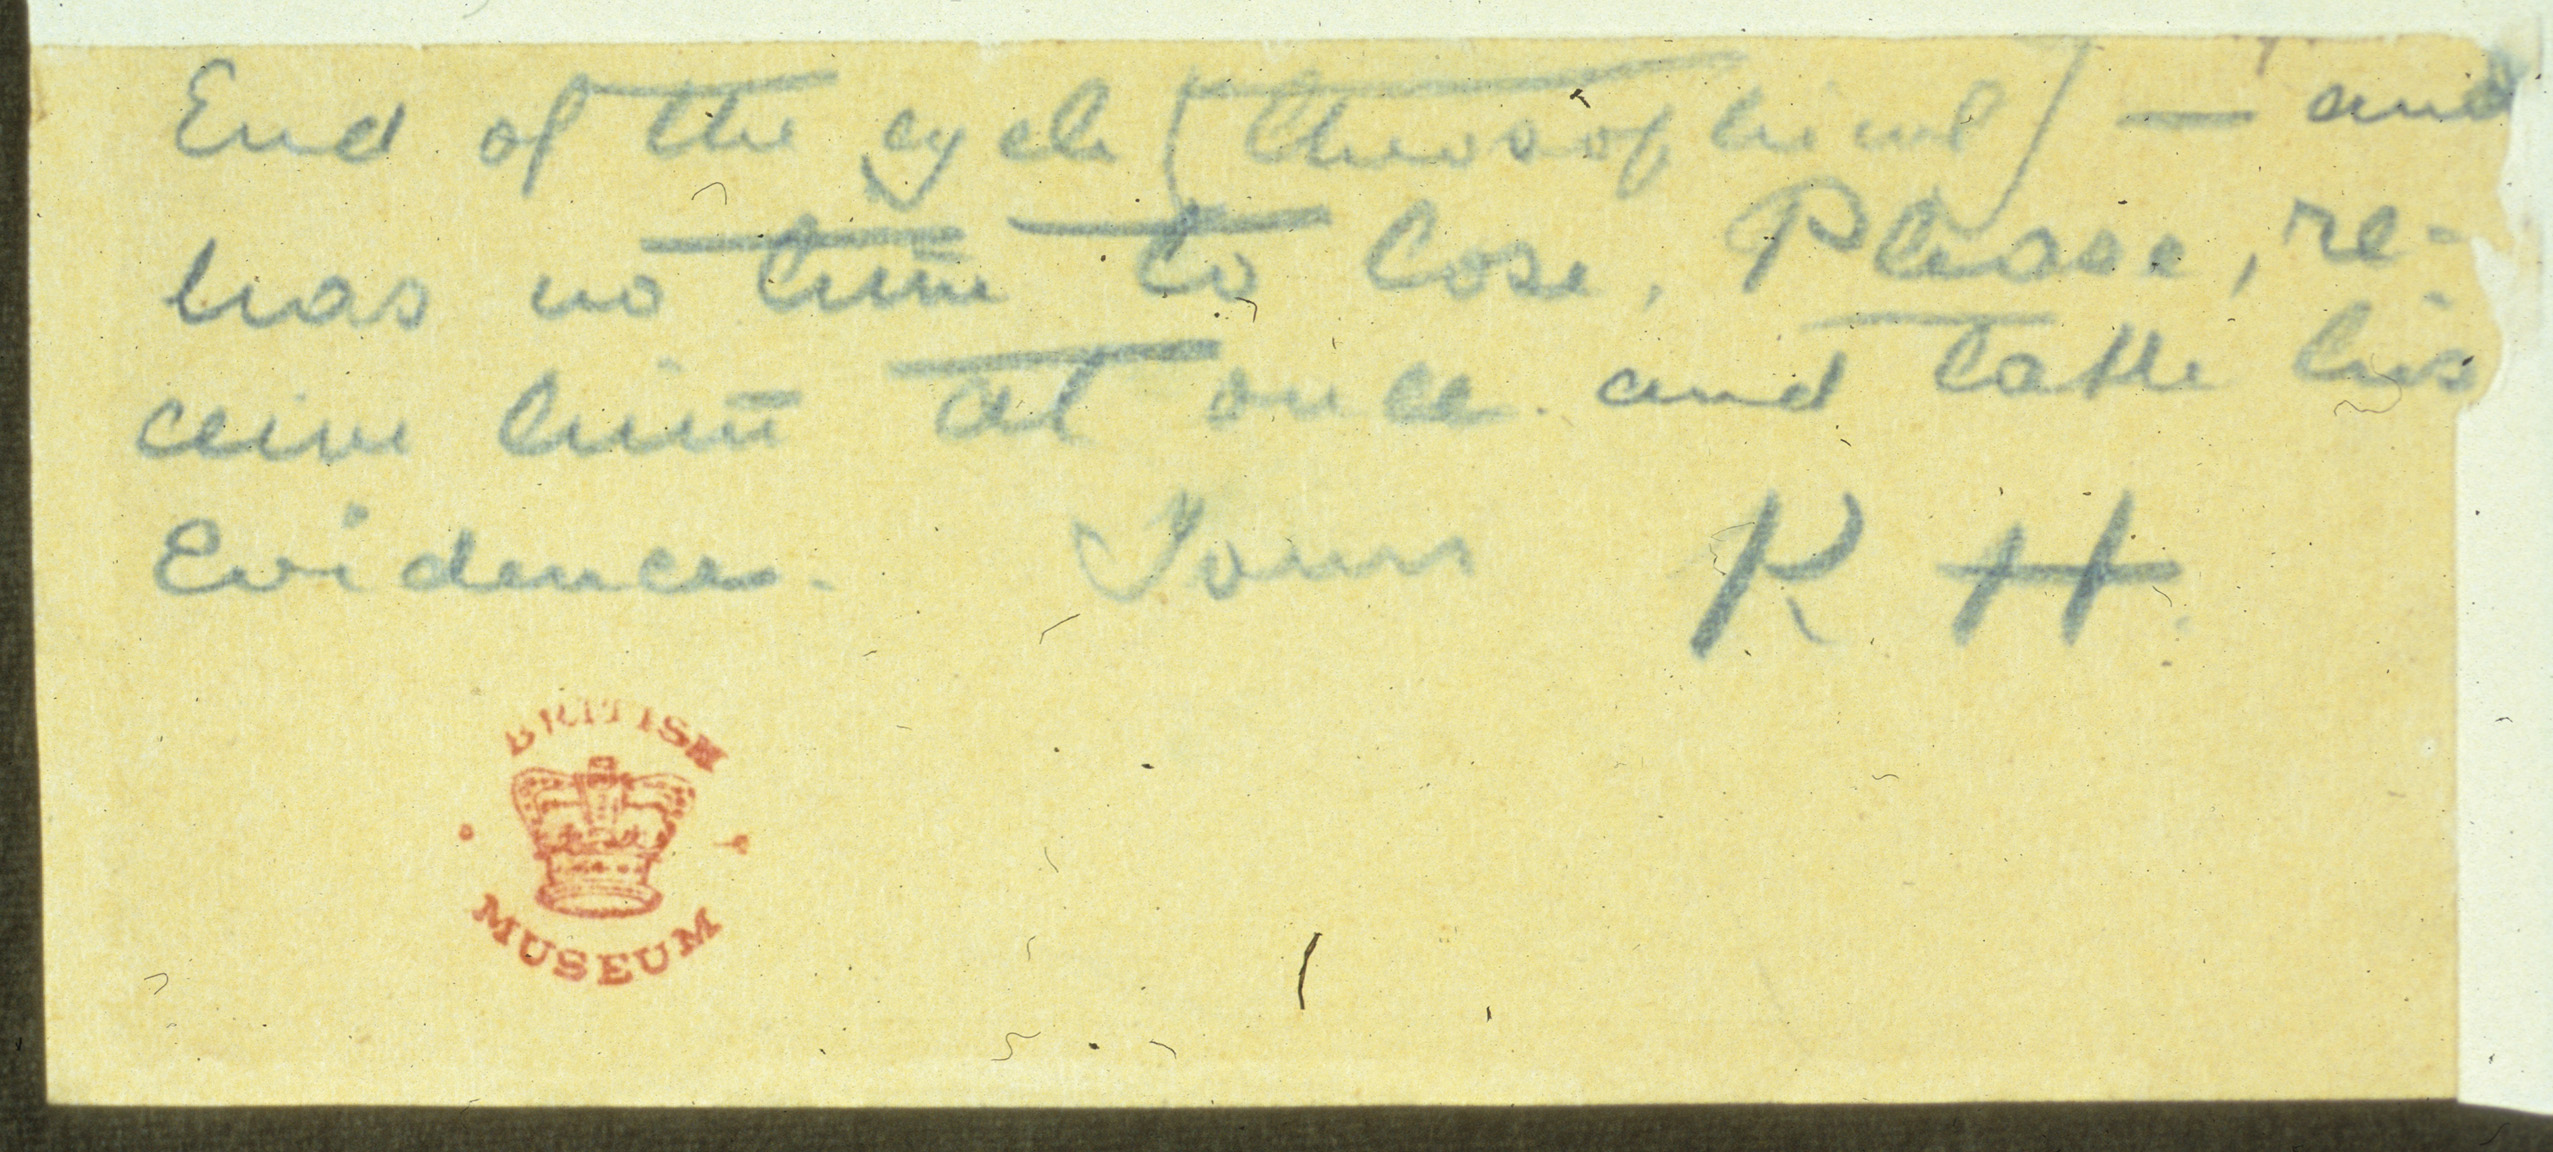 End of the cycle (theosophical) — and
has no time to lose. Please, re-
ceive him at once and take his
Evidence. Yours K H.
BRITISH
MUSEUM